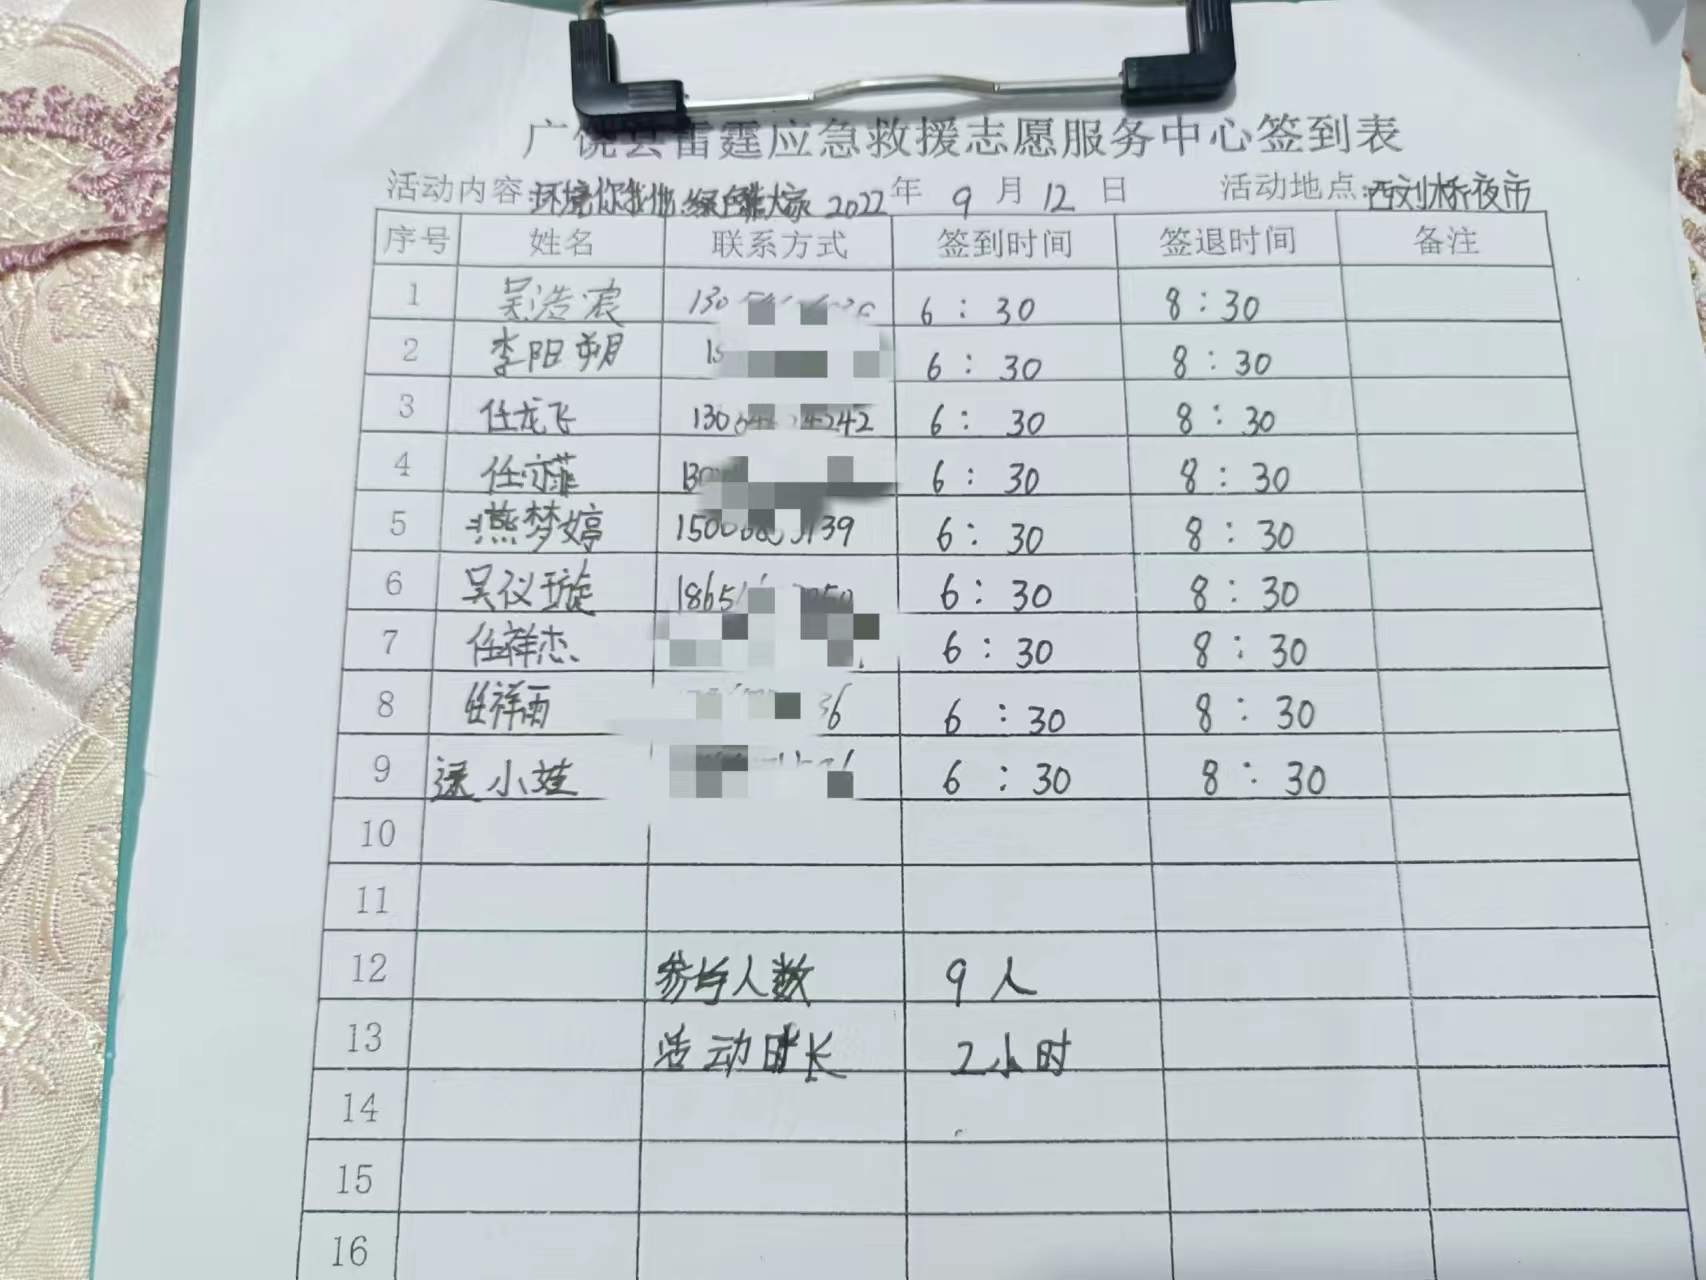 广饶县雷霆应急救援志愿服务中心签到表
活动内容:环境你我他 绿色靠大家 2022年 9月 12日 活动地点:西刘桥夜市
序号 姓名 联系方式 签到时间 签退时间 备注
1 吴浩宸 130 6:30 8:30
2 李阳朔 6:30 8:30
3 任龙飞 130 4242 6:30 8:30
4 任亦菲 6:30 8:30
5 燕梦婷 1500 139 6:30 8:30
6 吴仪璇 1865 6:30 8:30
7 任祥杰 6:30 8:30
8 任祥雨 36 6:30 8:30
9 小娃 6:30 8:30
10
11
12 参与人数 9人
13 活动时长 2小时
14
15
16